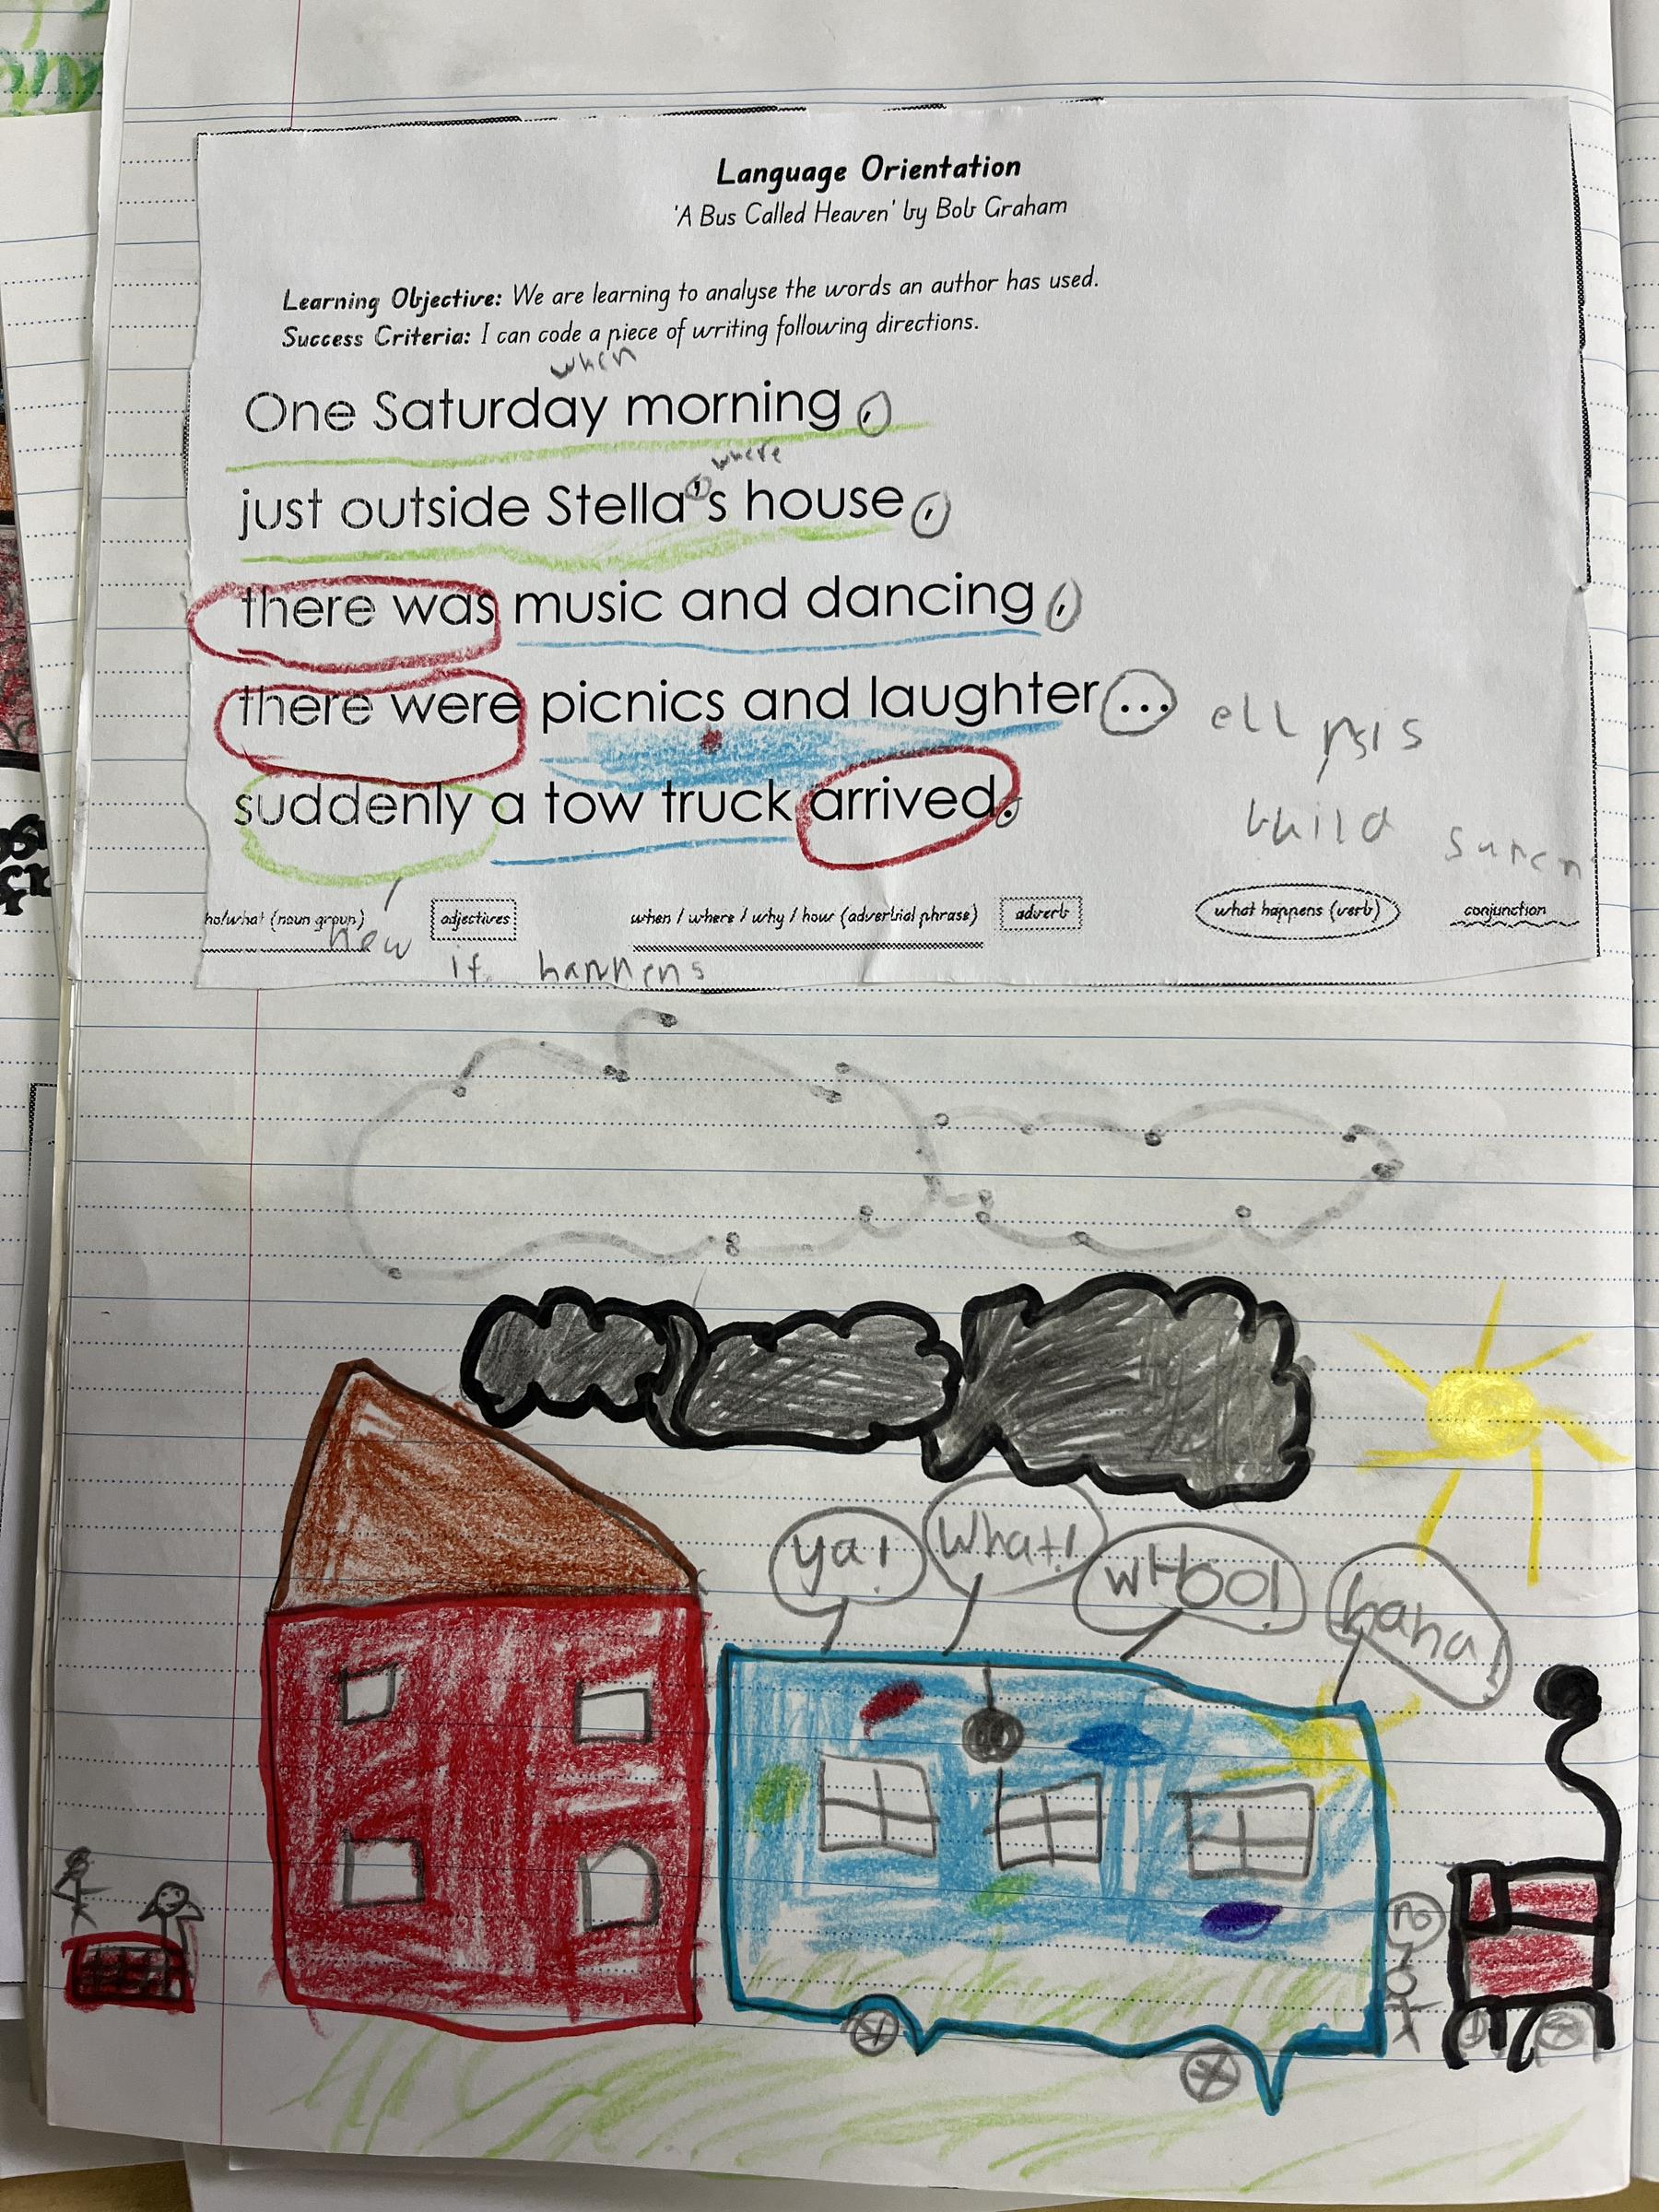 Language Orientation
'A Bus Called Heaven' by Bob Graham
Learning Objective: We are learning to analyse the words an author has used.
Success Criteria: I can code a piece of writing following directions.
when
One Saturday morning,
where
just outside Stella's house,
there was music and dancing,
there were picnics and laughter... ellipsis
suddenly a tow truck arrived.
build
ho/what (noun group) adjectives when / where / why / how (adverbial phrase) adverb what happens (verb) conjunction
how
it happens
ya! What! wHoo! haha!
no